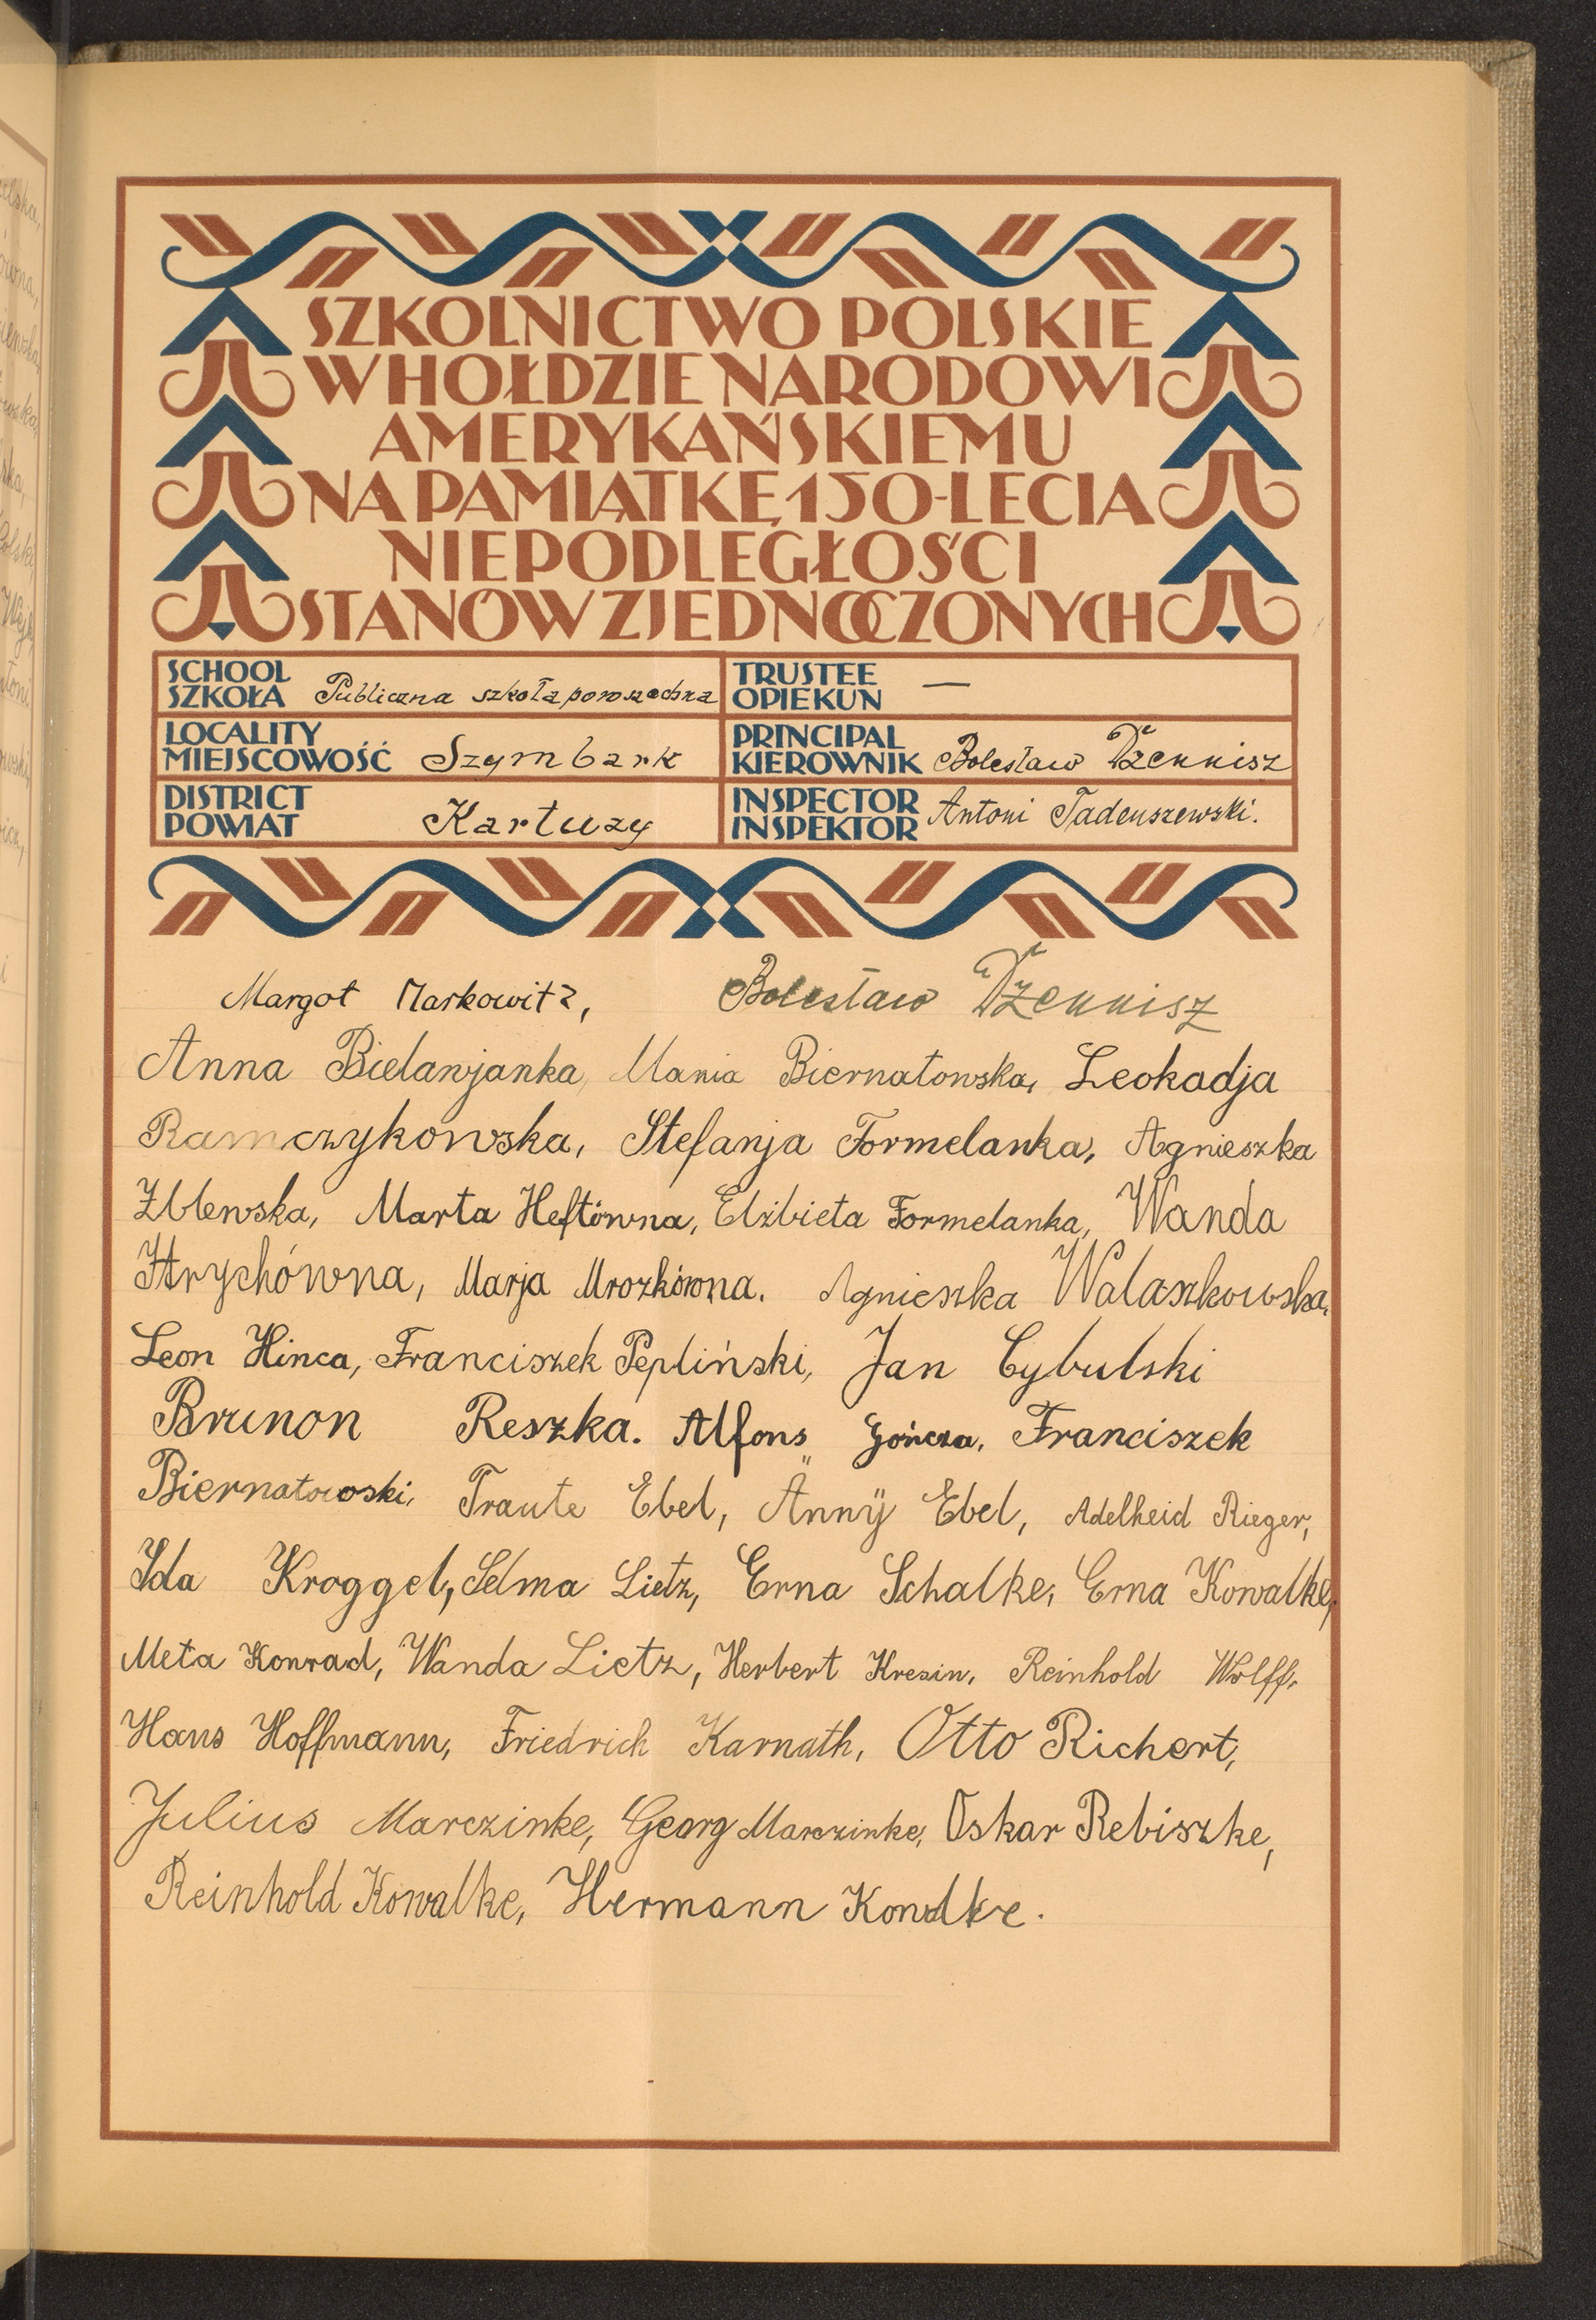 SZKOLNICTWO POLSKIE
W HOŁDZIE NARODOWI
AMERYKAŃSKIEMU
NA PAMIĄTKĘ 150-LECIA
NIEPODLEGŁOŚCI
STANÓW ZJEDNOCZONYCH
SCHOOL
SZKOŁA Publiczna szkoła powszechna
TRUSTEE
OPIEKUN —
LOCALITY
MIEJSCOWOŚĆ Szymbark
PRINCIPAL
KIEROWNIK Bolesław Dżennisz
DISTRICT
POWIAT Kartuzy
INSPECTOR
INSPEKTOR Antoni Tadeuszewski.
Margot Markowitz, Bolesław Dżennisz
Anna Bielawjanka, Mania Biernatowska, Leokadja
Ramczykowska, Stefanja Formelanka, Agnieszka
Zblewska, Marta Heftówna, Elżbieta Formelanka, Wanda
Hrychówna, Marja Mrozkówna. Agnieszka Walaszkowska,
Leon Hinca, Franciszek Pepliński, Jan Cybulski
Brunon Reszka. Alfons Gończa. Franciszek
Biernatowski, Traute Ebel, Änny Ebel, Adelheid Rieger,
Ida Kroggel, Selma Lietz, Erna Schalke, Erna Kowalke,
Meta Konrad, Wanda Lietz, Herbert Kresin, Reinhold Wolff,
Hans Hoffmann, Friedrich Karnath, Otto Richert,
Julius Marczinke, Georg Marczinke, Oskar Rebiszke,
Reinhold Kowalke, Hermann Kowalke.